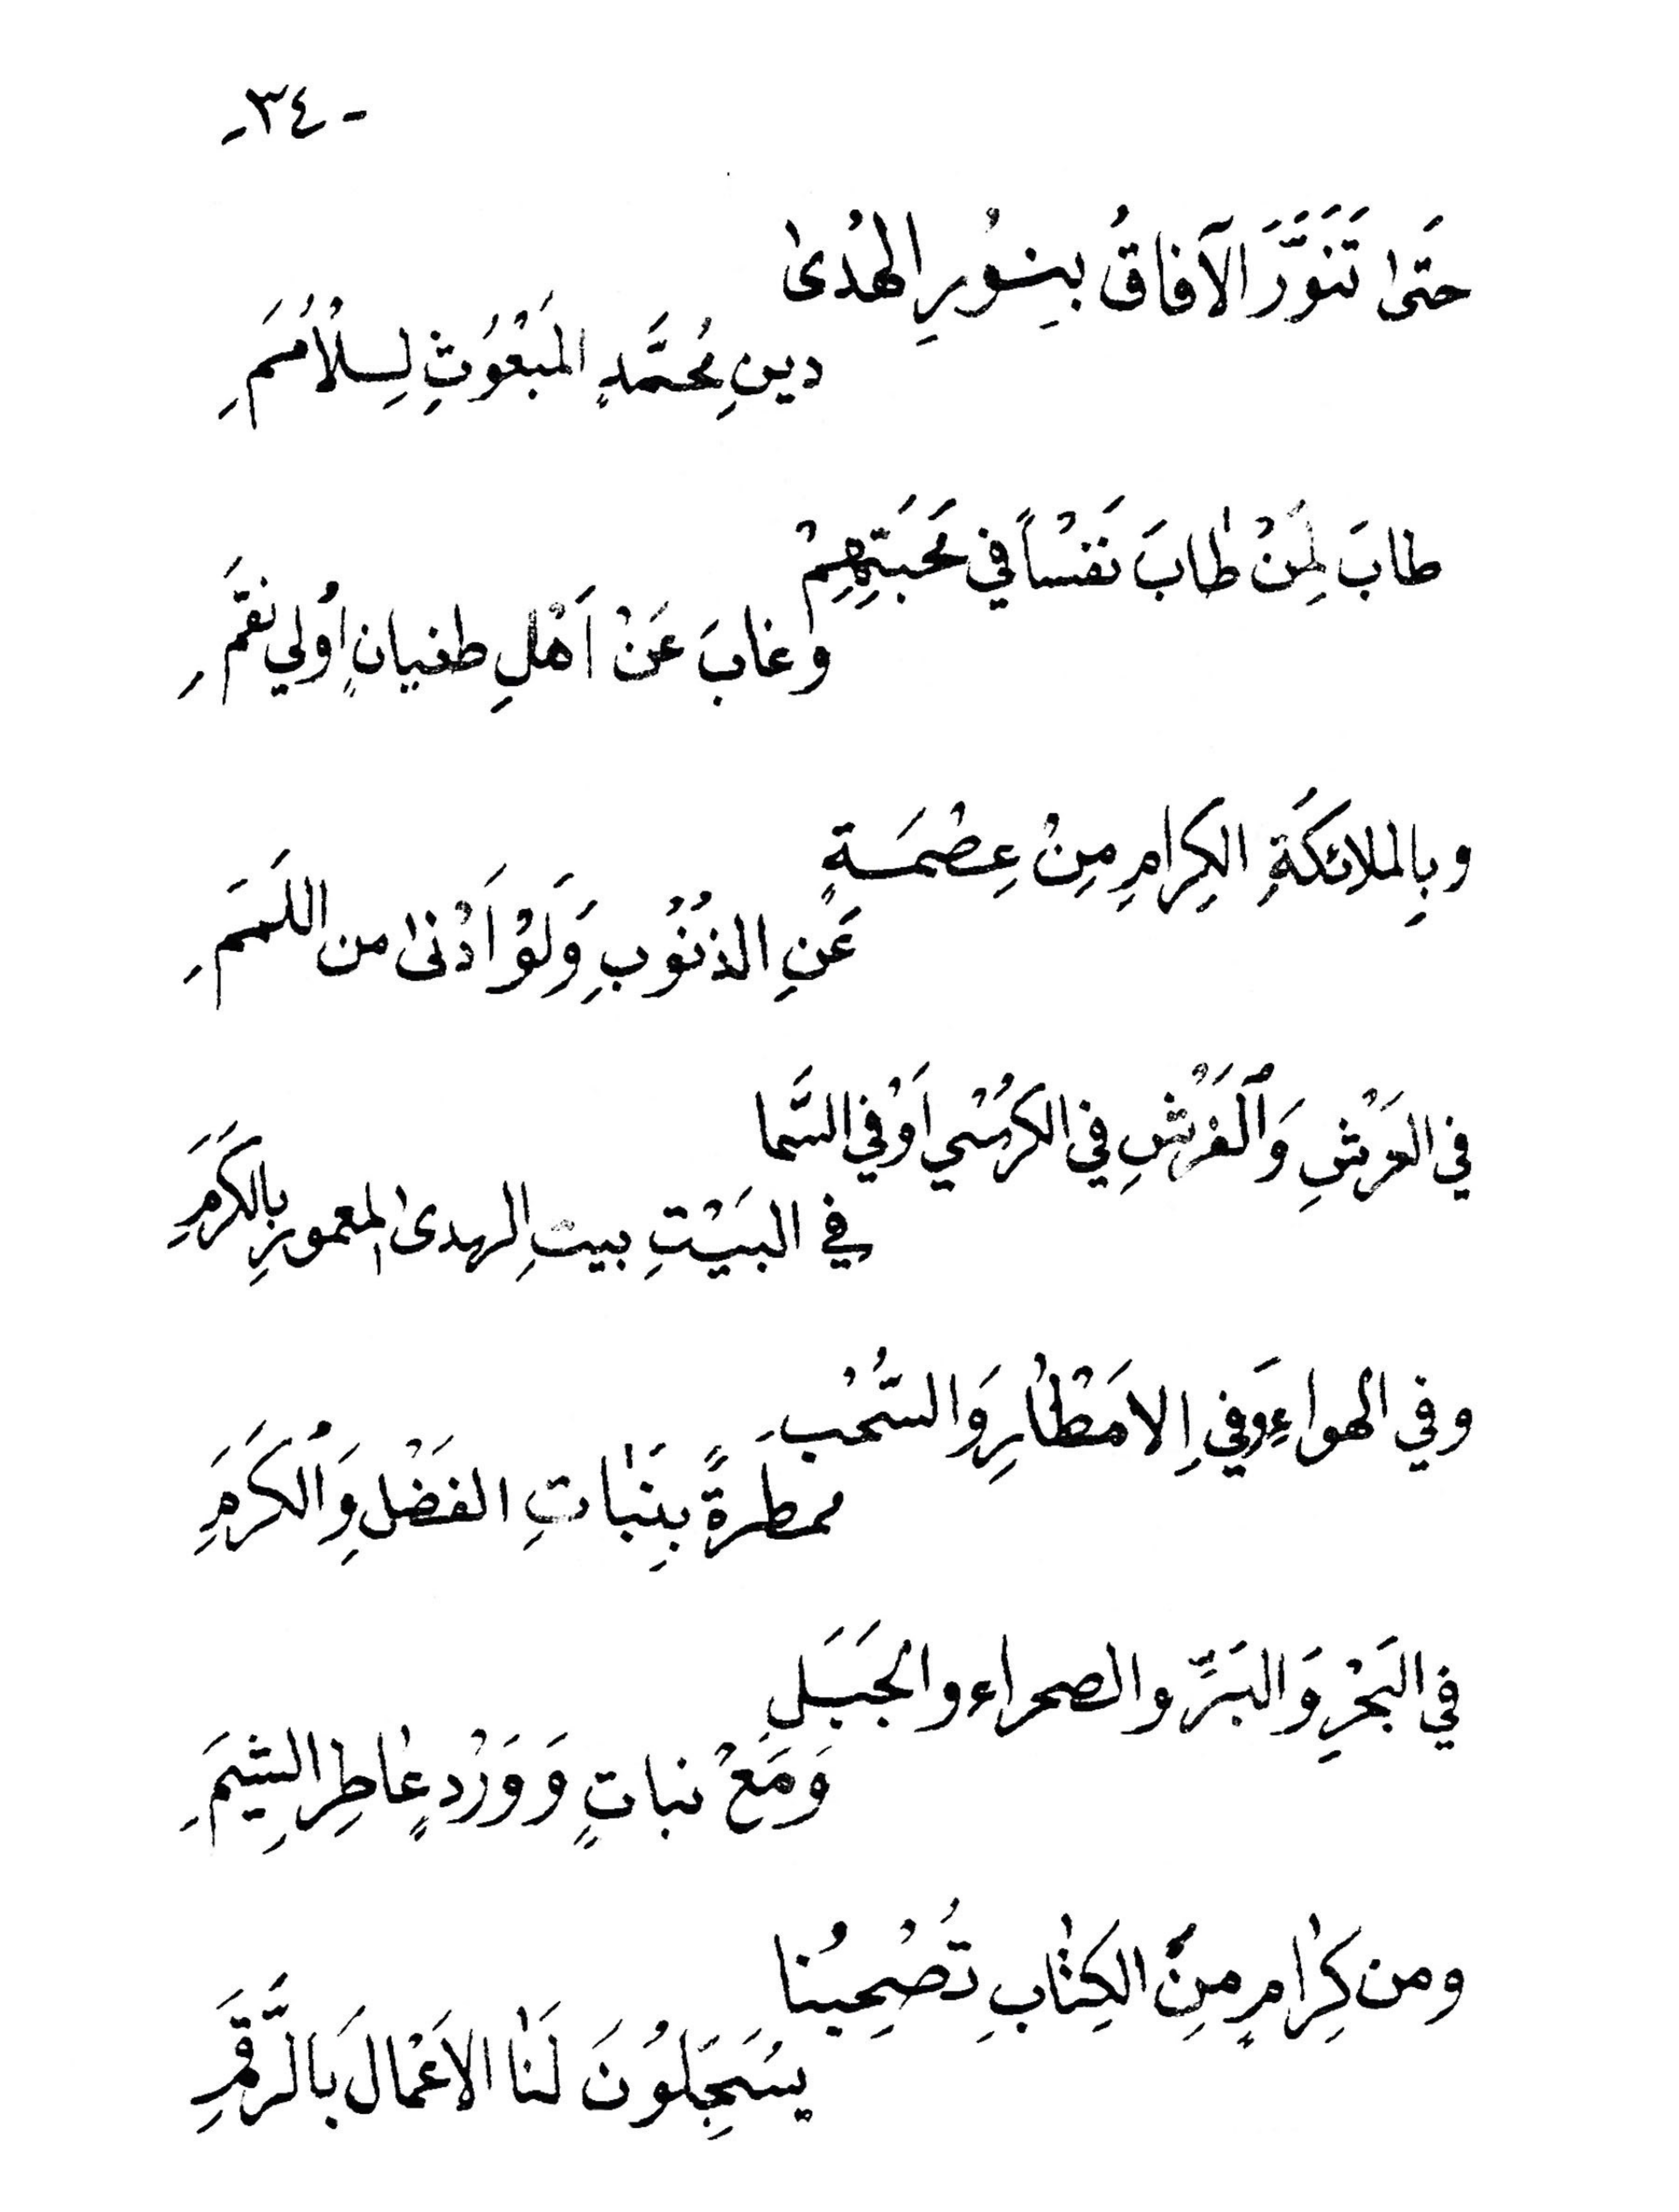 - ٣٤ -
حَتىٰ تَنَوَّرَ الآفاقُ بِنورِ الهُدىٰ
دينِ مُحَمَّدٍ المَبْعُوثِ لِلْأُمَمِ
طابَ لِمَنْ طٰابَ نَفْساً في مَحَبَتِهِمْ
وغابَ عَنْ اَهْلِ طغيانٍ اُولي نقَمِ
وبِالملائكَةِ الكِرامِ مِنْ عِصْمَةٍ
عَنِ الذنُوُبِ وَلَوْ اَدْنىٰ من اللَمَمِ
في العَرْشِ وَالْفَرْشِ في الكرسْي اَوْ في السَّما
في البَيْتِ بيتِ الهدىٰ المعمورِ بِالكَرَمِ
وفي الهواءِ وَفي الامَطْارِ وَالسُّحْبِ
ممطَرةً بِنَبٰاتِ الفَضْلِ وَالْكَرَمِ
في البَحْرِ وَالبَرِّ والصحراء والجَبَلِ
وَمَعْ نباتٍ وَوَرْدٍ عٰاطِرِ الشِيَمِ
ومن كِرٰامٍ مِنْ الكِتٰابِ تُصْحِبُنا
يسَجِّلوُنَ لَنٰا الاَعْمٰالَ بَالرَّقَمِ